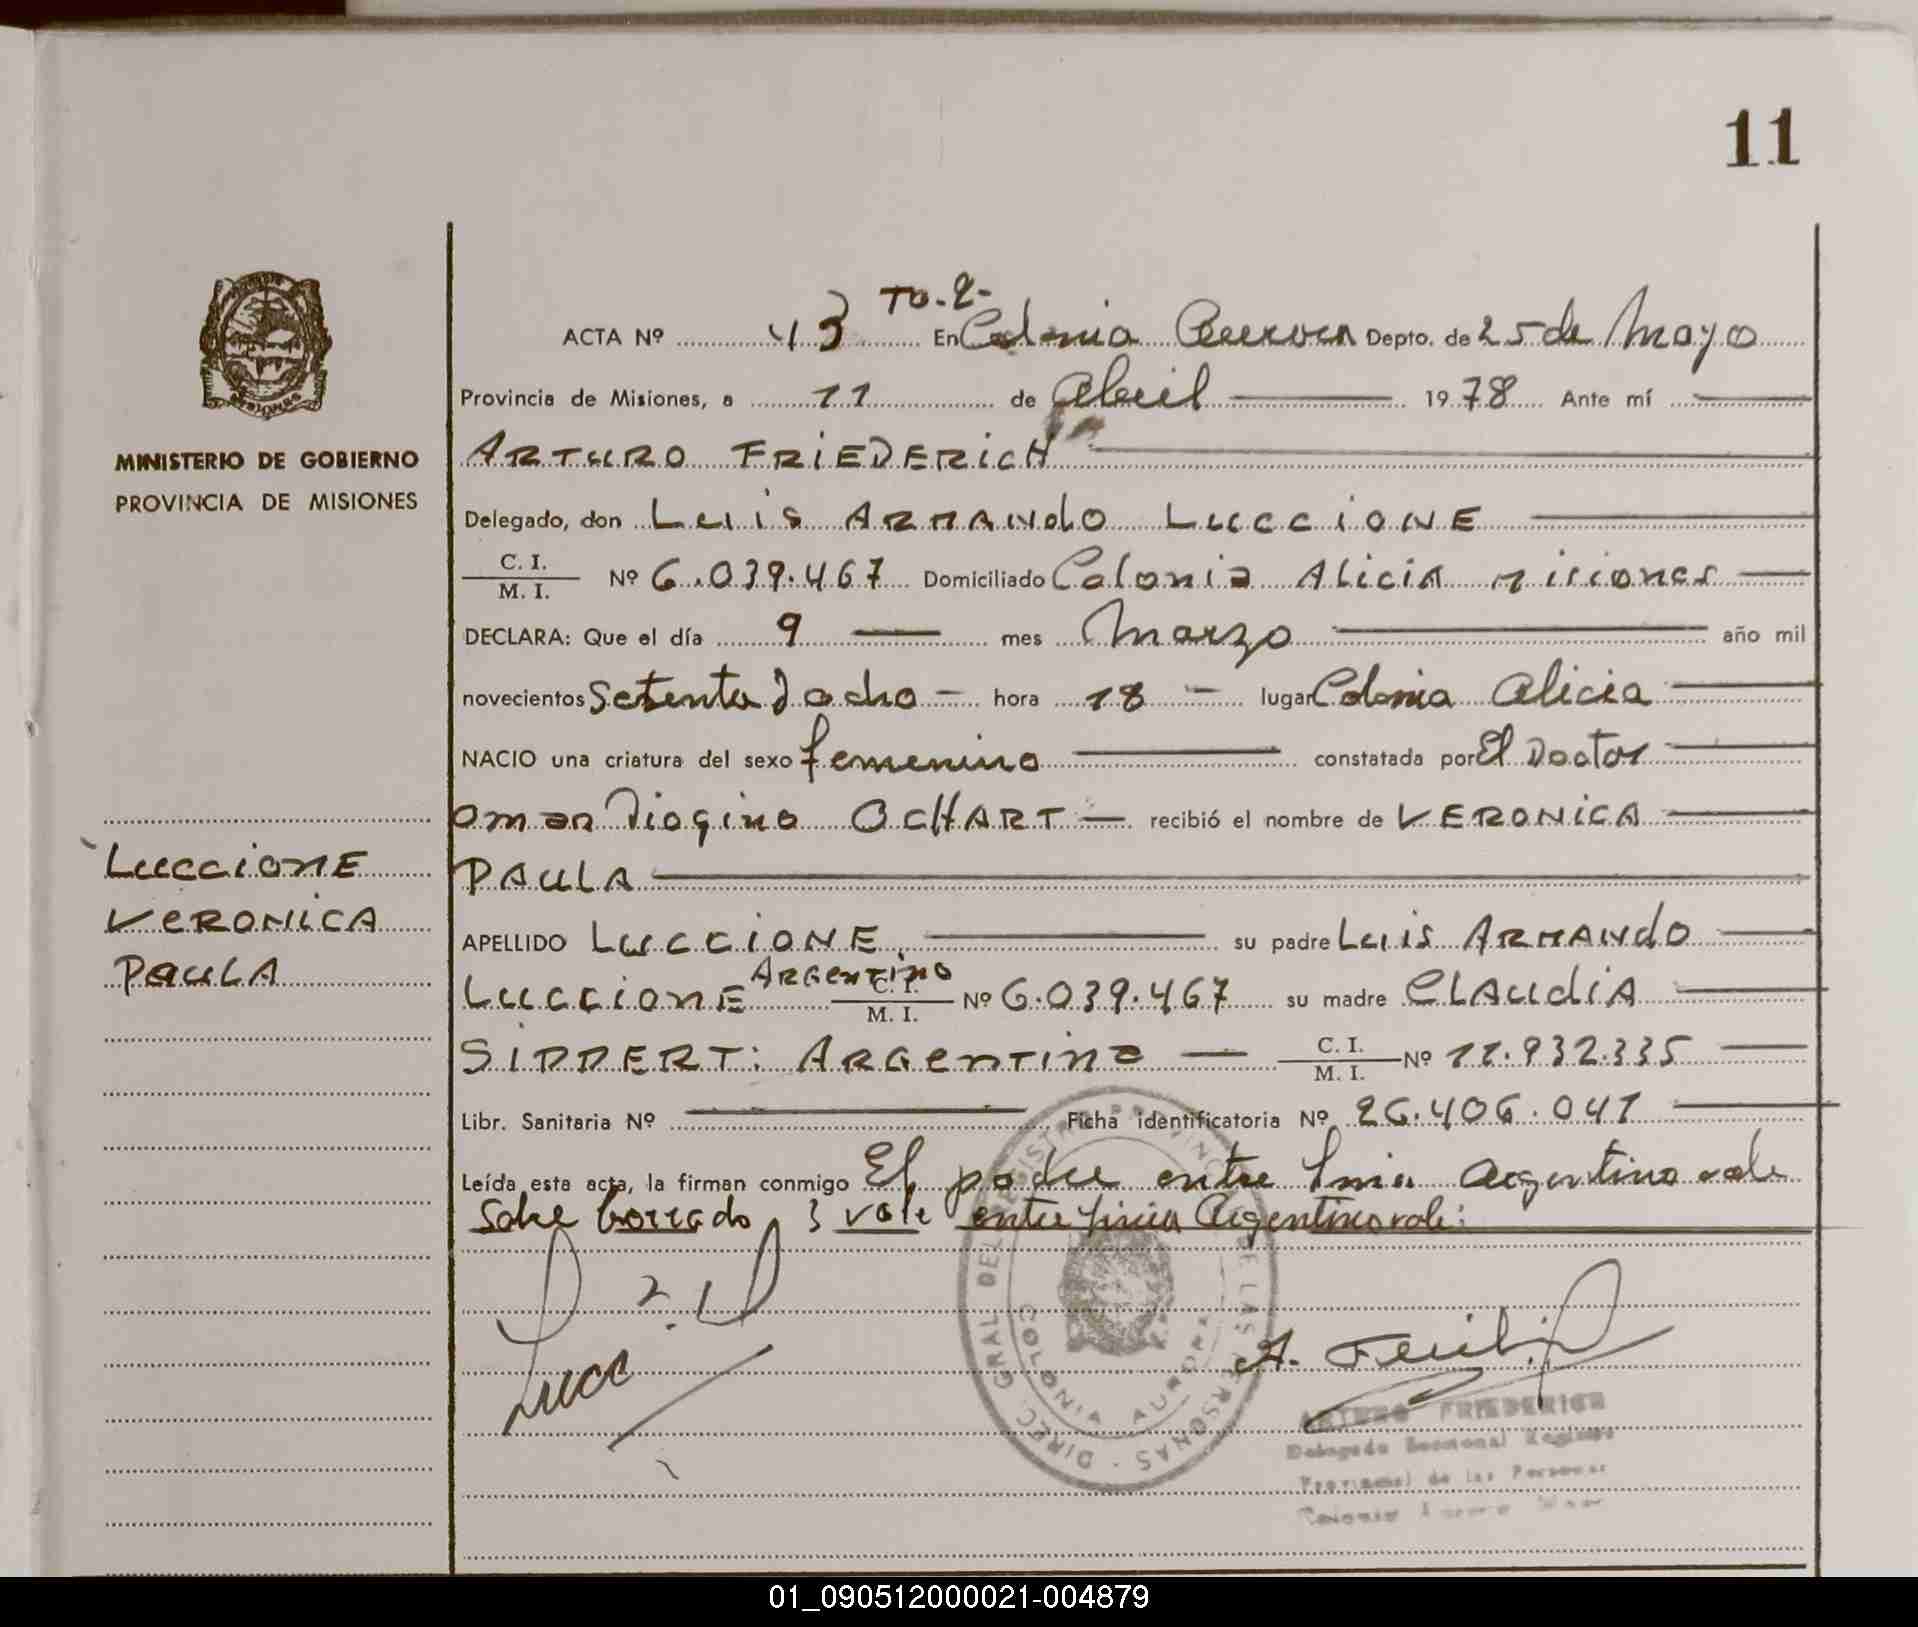 11
ACTA Nº 43 To. 2- En Colonia Aurora Depto. de 25 de Mayo
Provincia de Misiones, a 11 de Abril 1978 Ante mí
ARTURO FRIEDERICH
MINISTERIO DE GOBIERNO
PROVINCIA DE MISIONES
Delegado, don LUIS ARMANDO LUCCIONE
C. I.
M. I. Nº 6.039.467 Domiciliado Colonia Alicia Misiones
DECLARA: Que el día 9 mes Marzo año mil
novecientos Setenta y ocho hora 18 lugar Colonia Alicia
NACIO una criatura del sexo femenino constatada por El Doctor
Omar Diogino OCHART recibió el nombre de VERONICA
PAULA
LUCCIONE
VERONICA
PAULA
APELLIDO LUCCIONE su padre LUIS ARMANDO
LUCCIONE Argentino C. I. M. I. Nº 6.039.467 su madre CLAUDIA
SIPPERT: ARGENTINA C. I. M. I. Nº 11.932.335
Libr. Sanitaria Nº Ficha identificatoria Nº 26.406.041
Leída esta acta, la firman conmigo El padre entre linia Argentino vale
Sobre borrado 3 vale entre linia Argentino vale:
Lucc
A.
DIREC. GRAL DEL REGISTRO PROVINCIAL DE LAS PERSONAS
COLONIA AURORA
ARTURO FRIEDERICH
Delegado Seccional Registro
Provincial de las Personas
Colonia Aurora
01_090512000021-004879